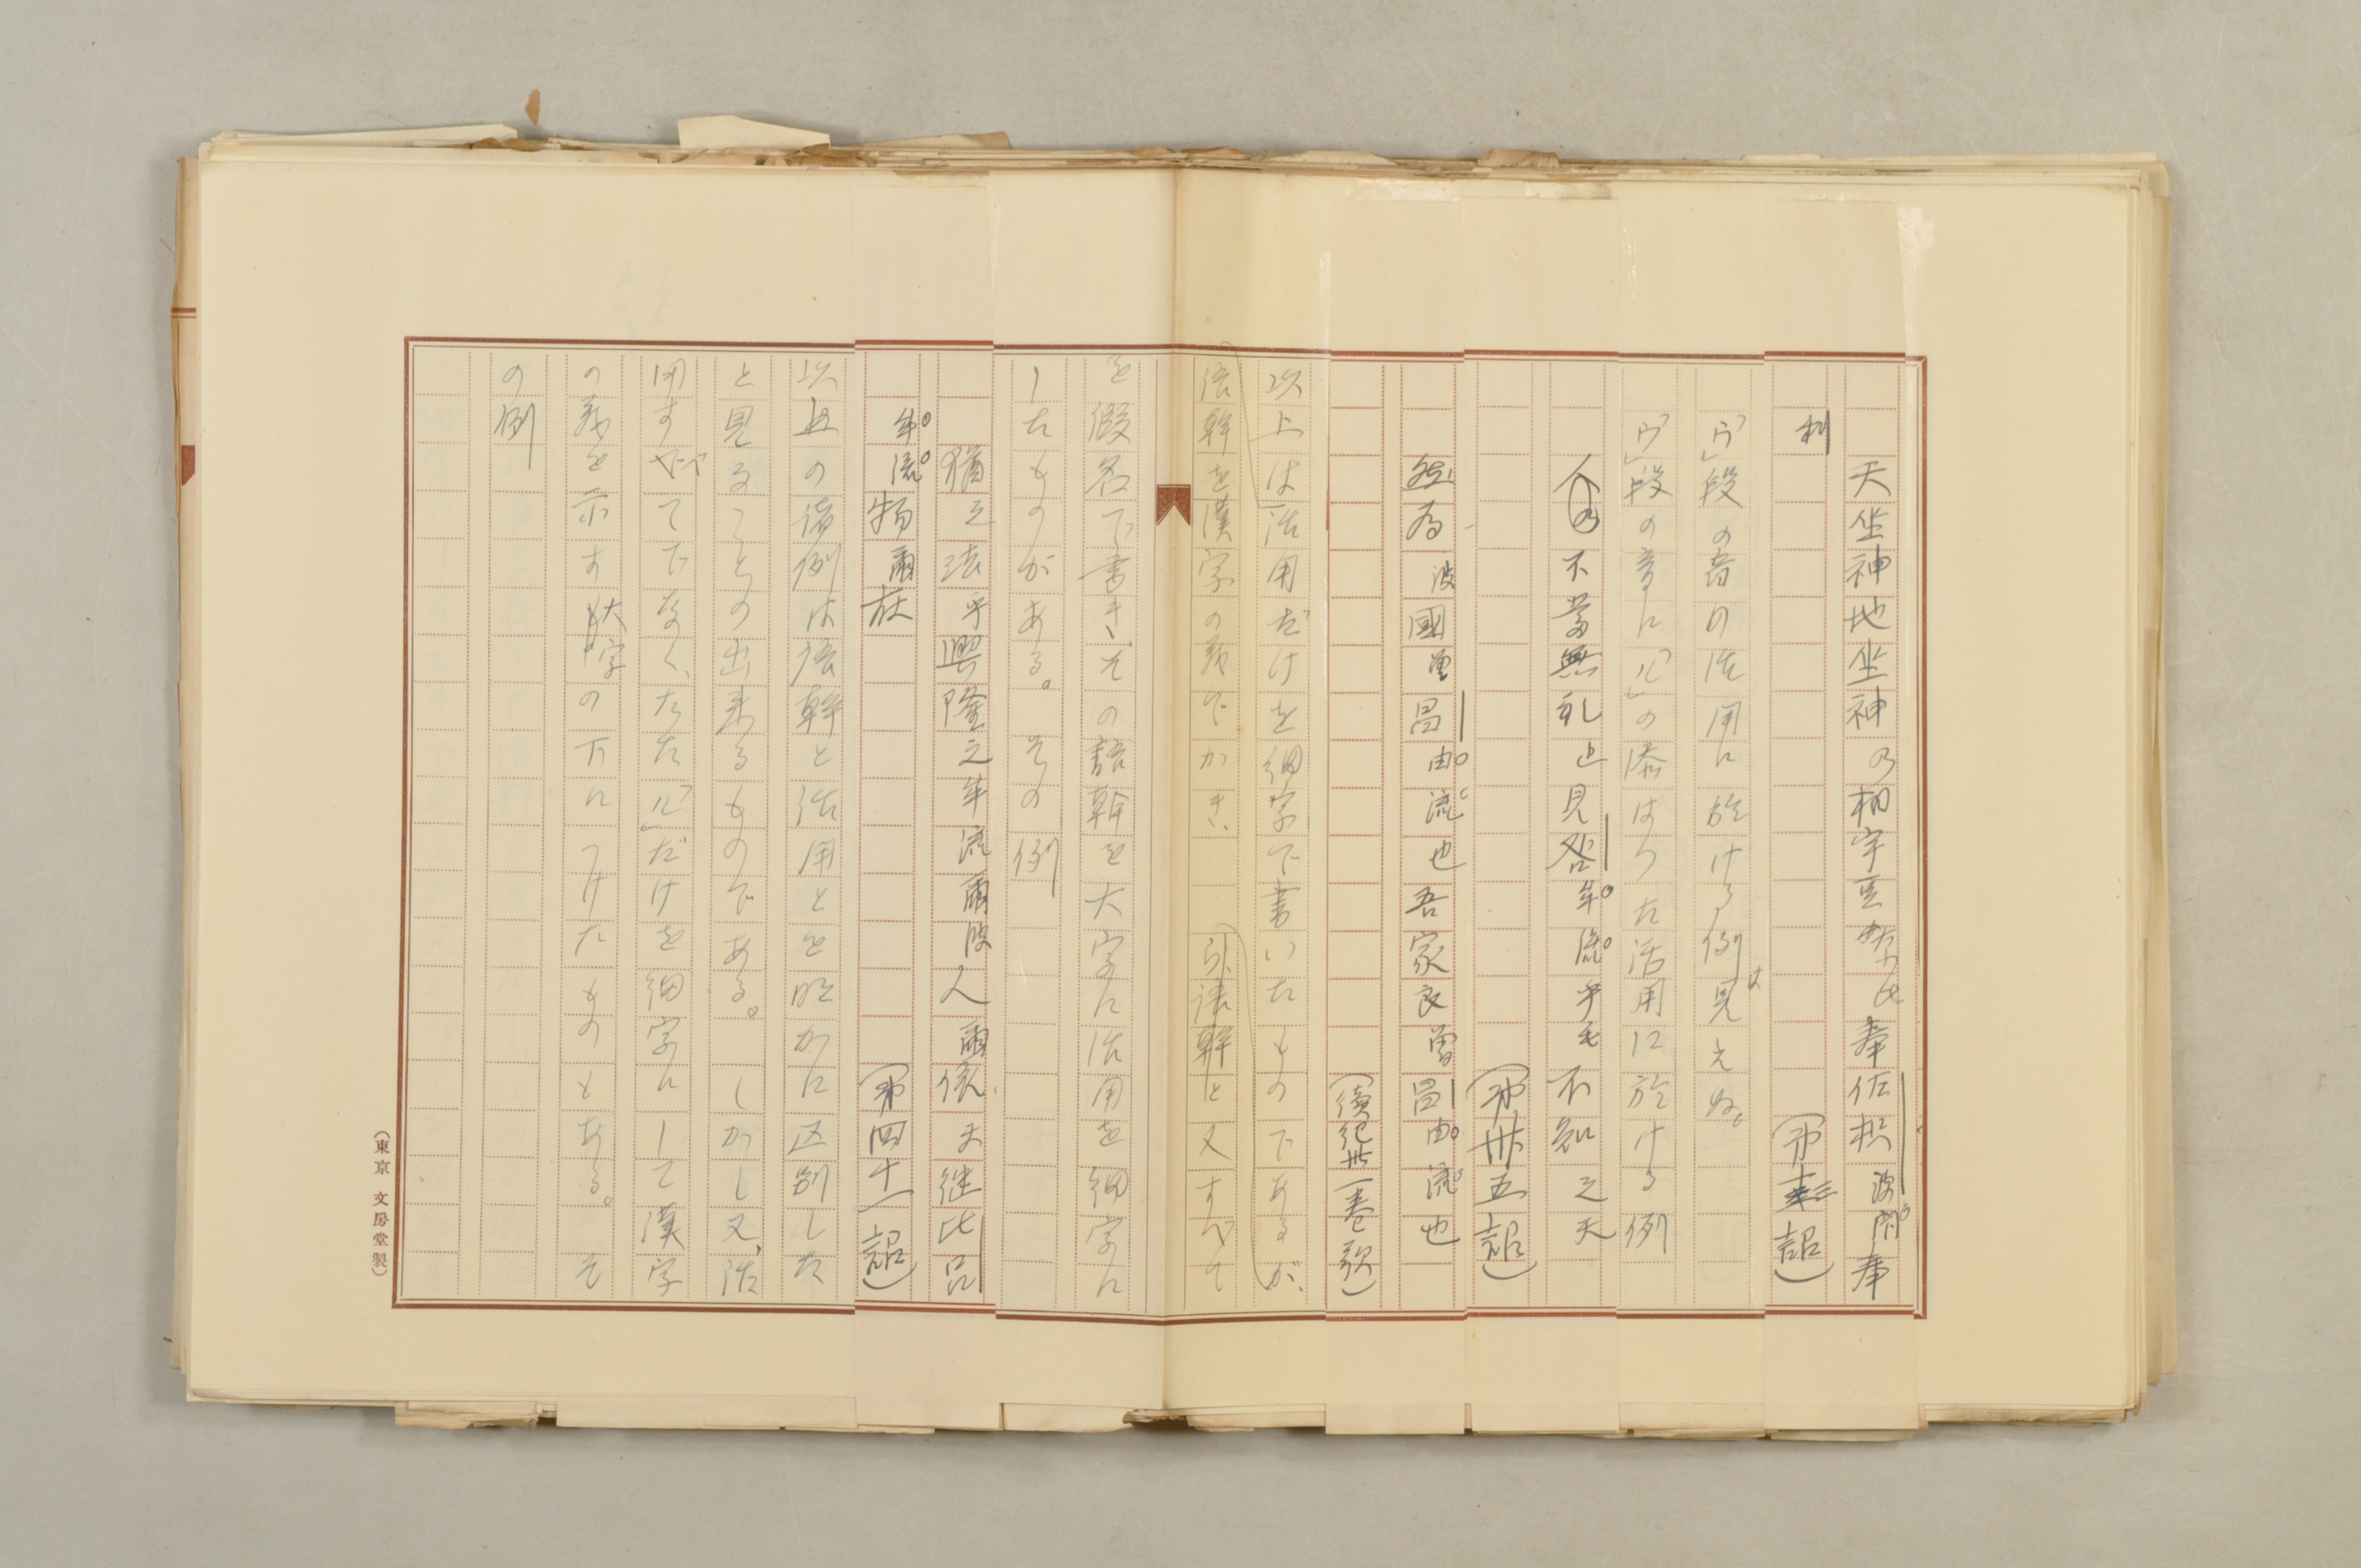 天坐神地坐神乃相宇豆奈比奉佐枳波閇奉
利（第十三詔）
「ウ」段の音の活用に於ける例は見えぬ。
「ウ」段の音に「ル」の添はつた活用に於ける例
人乃不當無礼止見咎牟流乎毛不知之天
（第卅五詔）
然為波國曽昌由流也吾家良曽昌由流也
（續紀卅一巻歌）
以上は活用だけを細字で書いたものであるが、
語幹を漢字の義でかき、引語幹と又すべて
を假名で書き、その語幹を大字に活用を細字に
したものがある。その例
猶之法乎興隆之牟流爾波人爾依天継比呂
牟流物爾在（第四十一詔）
以上の諸例は語幹と活用とを明かに区別した
と見ることの出来るものである。しかし又、活
用すべてでなく、たった「ル」だけを細字にして漢字
の義を示す大字の下につけたものもある。そ
の例
（東京 文房堂製）